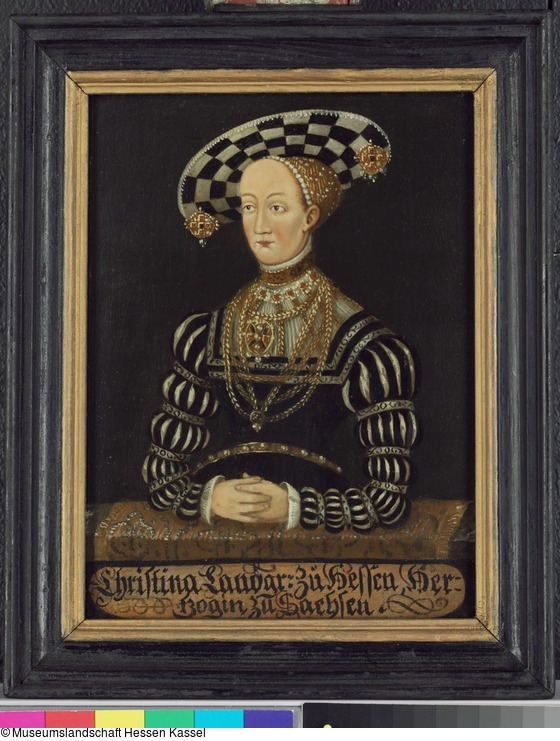 Christina Landgr: Zu Hessen, Her-
zogin zu Sachsen.
©Museumslandschaft Hessen Kassel